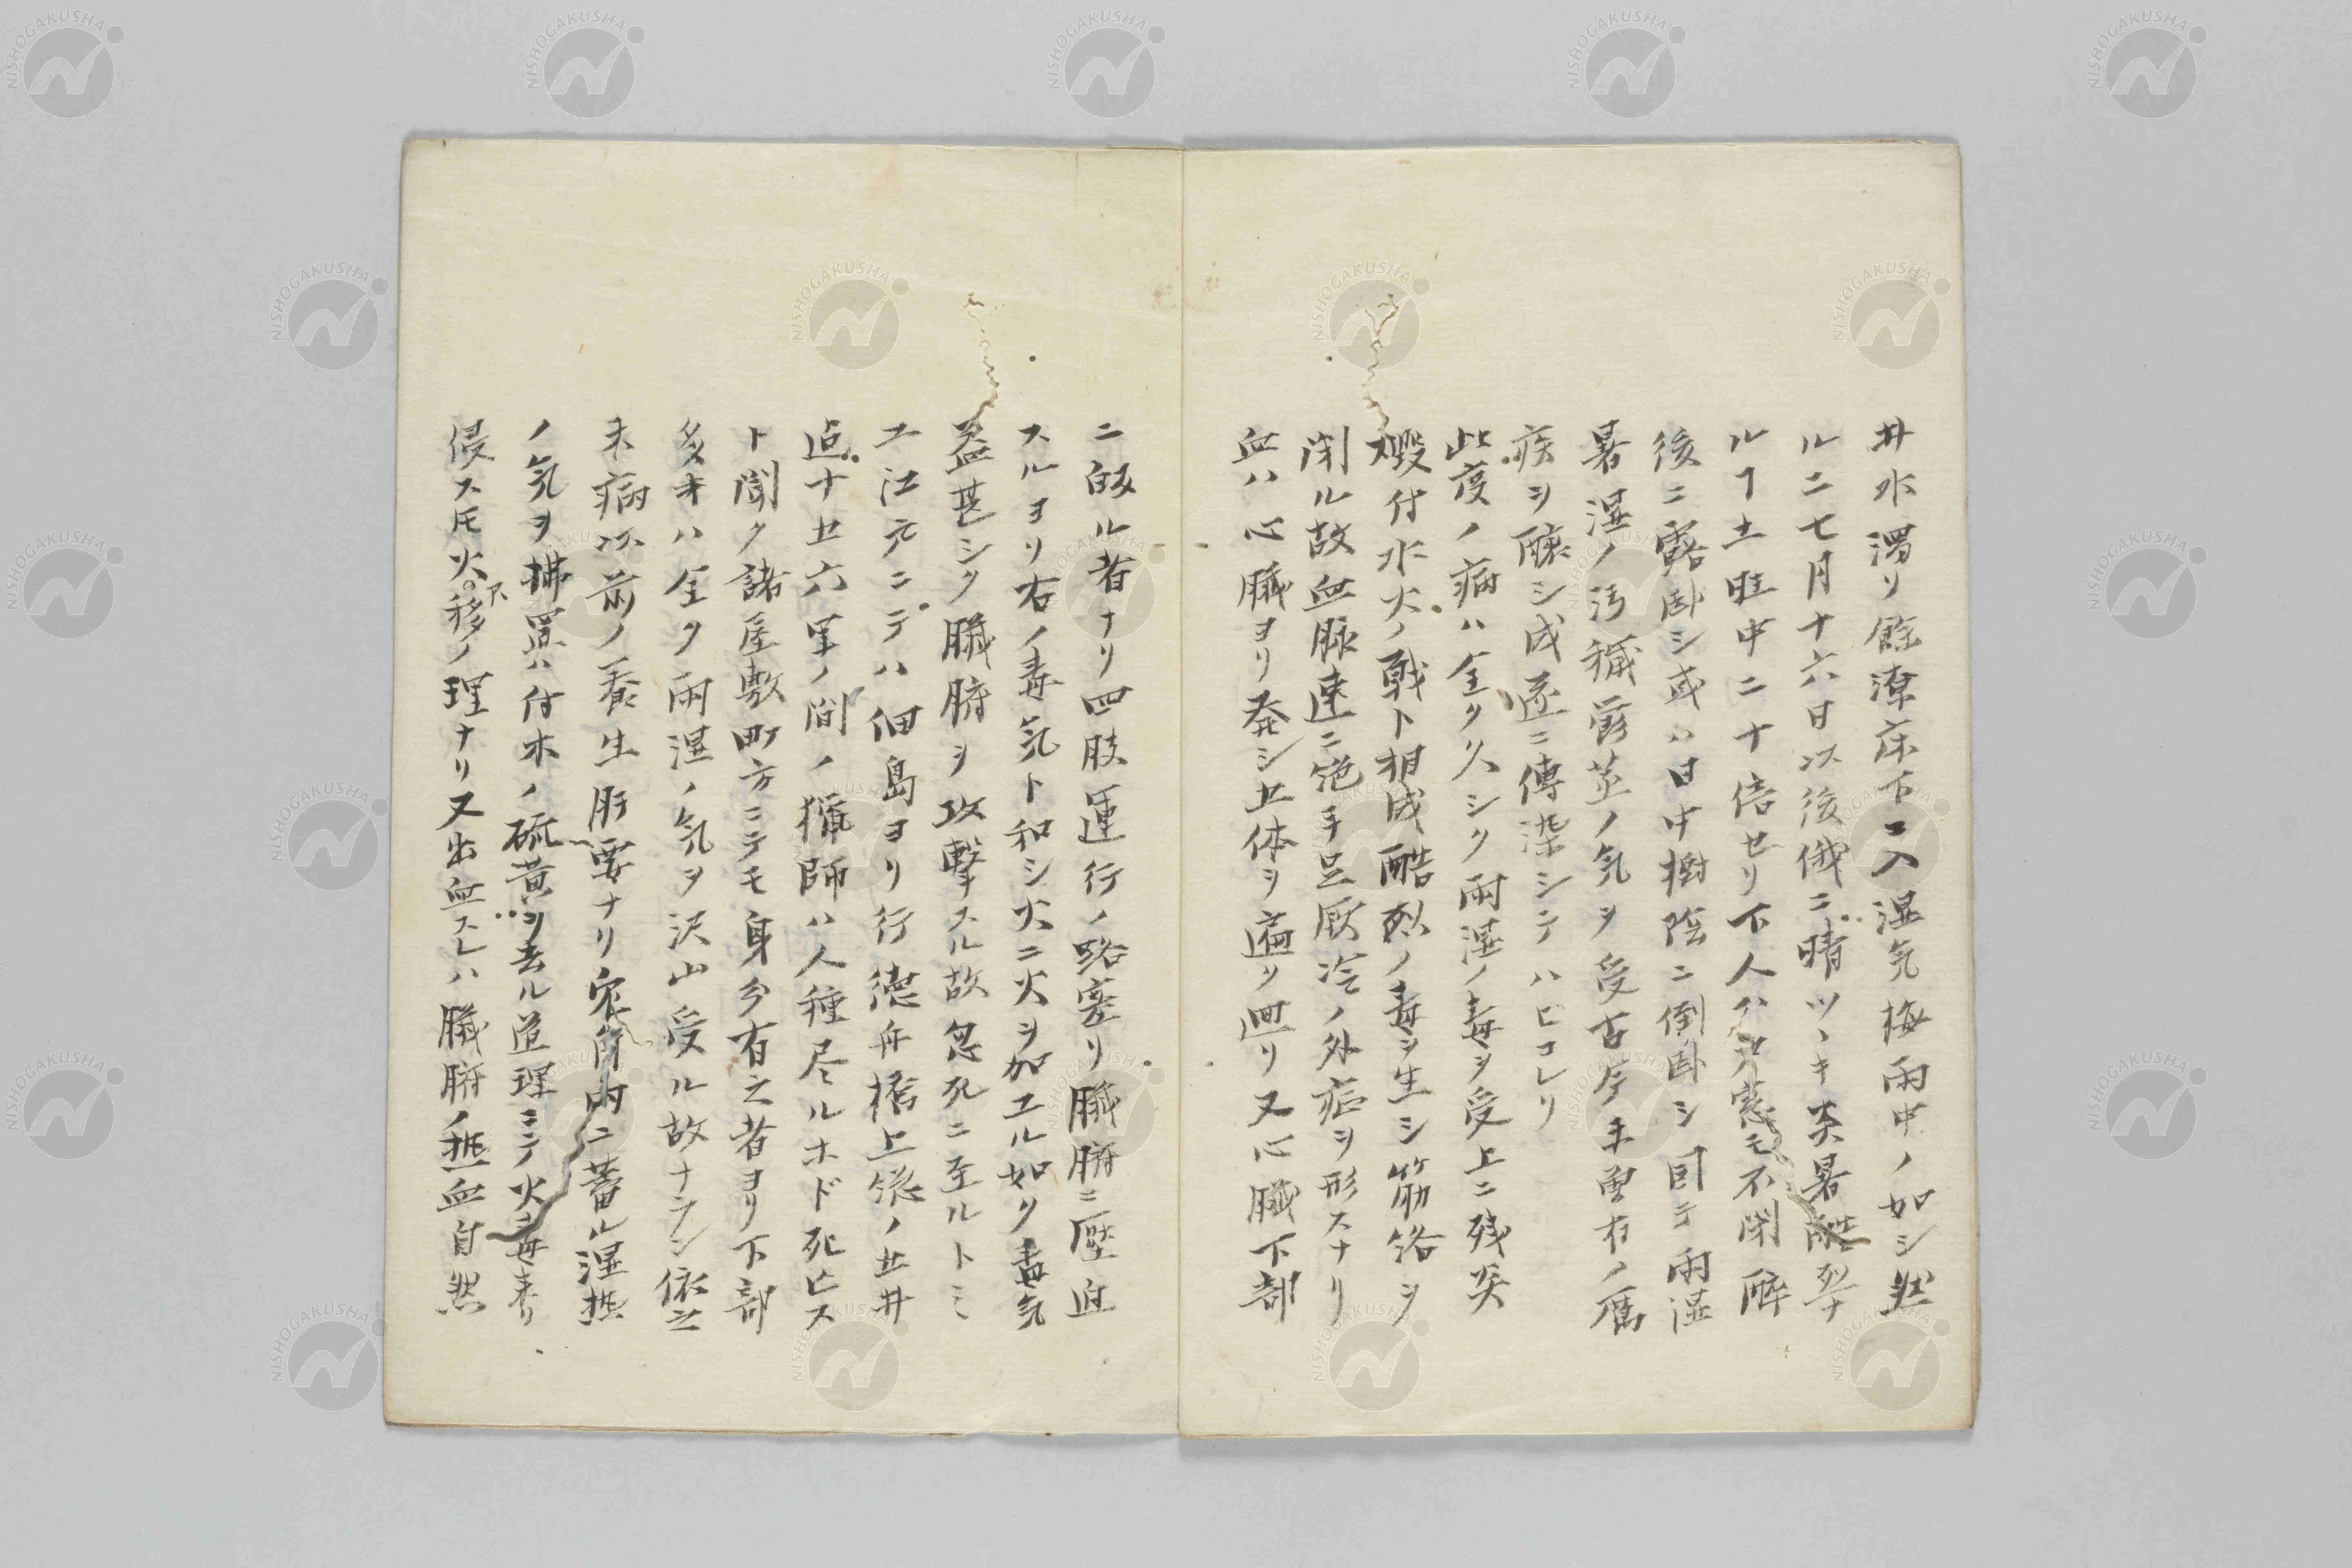 井水濁リ餘潦床下ニ入湿気梅雨中ノ如シ然
ルニ七月十六日以後俄ニ晴ツヽキ炎暑酷烈ナ
ルヿ土旺中ニ十倍セリ下人ハ窓モ不閉酔
後ニ露臥シ或ハ日中樹陰ニ倒臥シ因テ雨湿
暑湿ノ汚穢欝蒸ノ気ヲ受古今未曽有ノ厲
疾ヲ醸シ成遂ニ傳染シテハヒコレリ
此度ノ病ハ全ク久シク雨湿ノ毒ヲ受上ニ残炎
燬付水火ノ戦ト相成酷烈ノ毒ヲ生シ筋絡ヲ
閉ル故血脉速ニ絶手足厥冷ノ外症ヲ形スナリ
血ハ心臓ヨリ発シ止体ヲ遍ク廻リ又心臓下部
ニ皈ル者ナリ四肢運行ノ路塞リ臓腑ニ壓迫
スルヨリ右ノ毒気ト和シ火ニ火ヲ加エル如ク毒気
益甚シク臓腑ヲ攻撃スル故忽死ニ至ルトミ
ユ江戸ニテハ佃島ヨリ行徳舟橋上総ノ廿井
迠ナ廿六里ノ間ノ猟師ハ人種尽ルホド死亡ス
ト聞ク諸屋敷町方ニテモ身分有之者ヨリ下部
多キハ全ク雨湿ノ気ヲ沢山受ル故ナラン依之
未病以前ノ養生肝要ナリ家々府内ニ蓄ル湿熱
ノ気ヲ拂置ハ付木ノ硫黄ヲ去ル道理ニテ火毒来リ
侵スモ火不移ノ理ナリ又出血スレハ臓腑ノ熱血自然
NISHOGAKUSHA